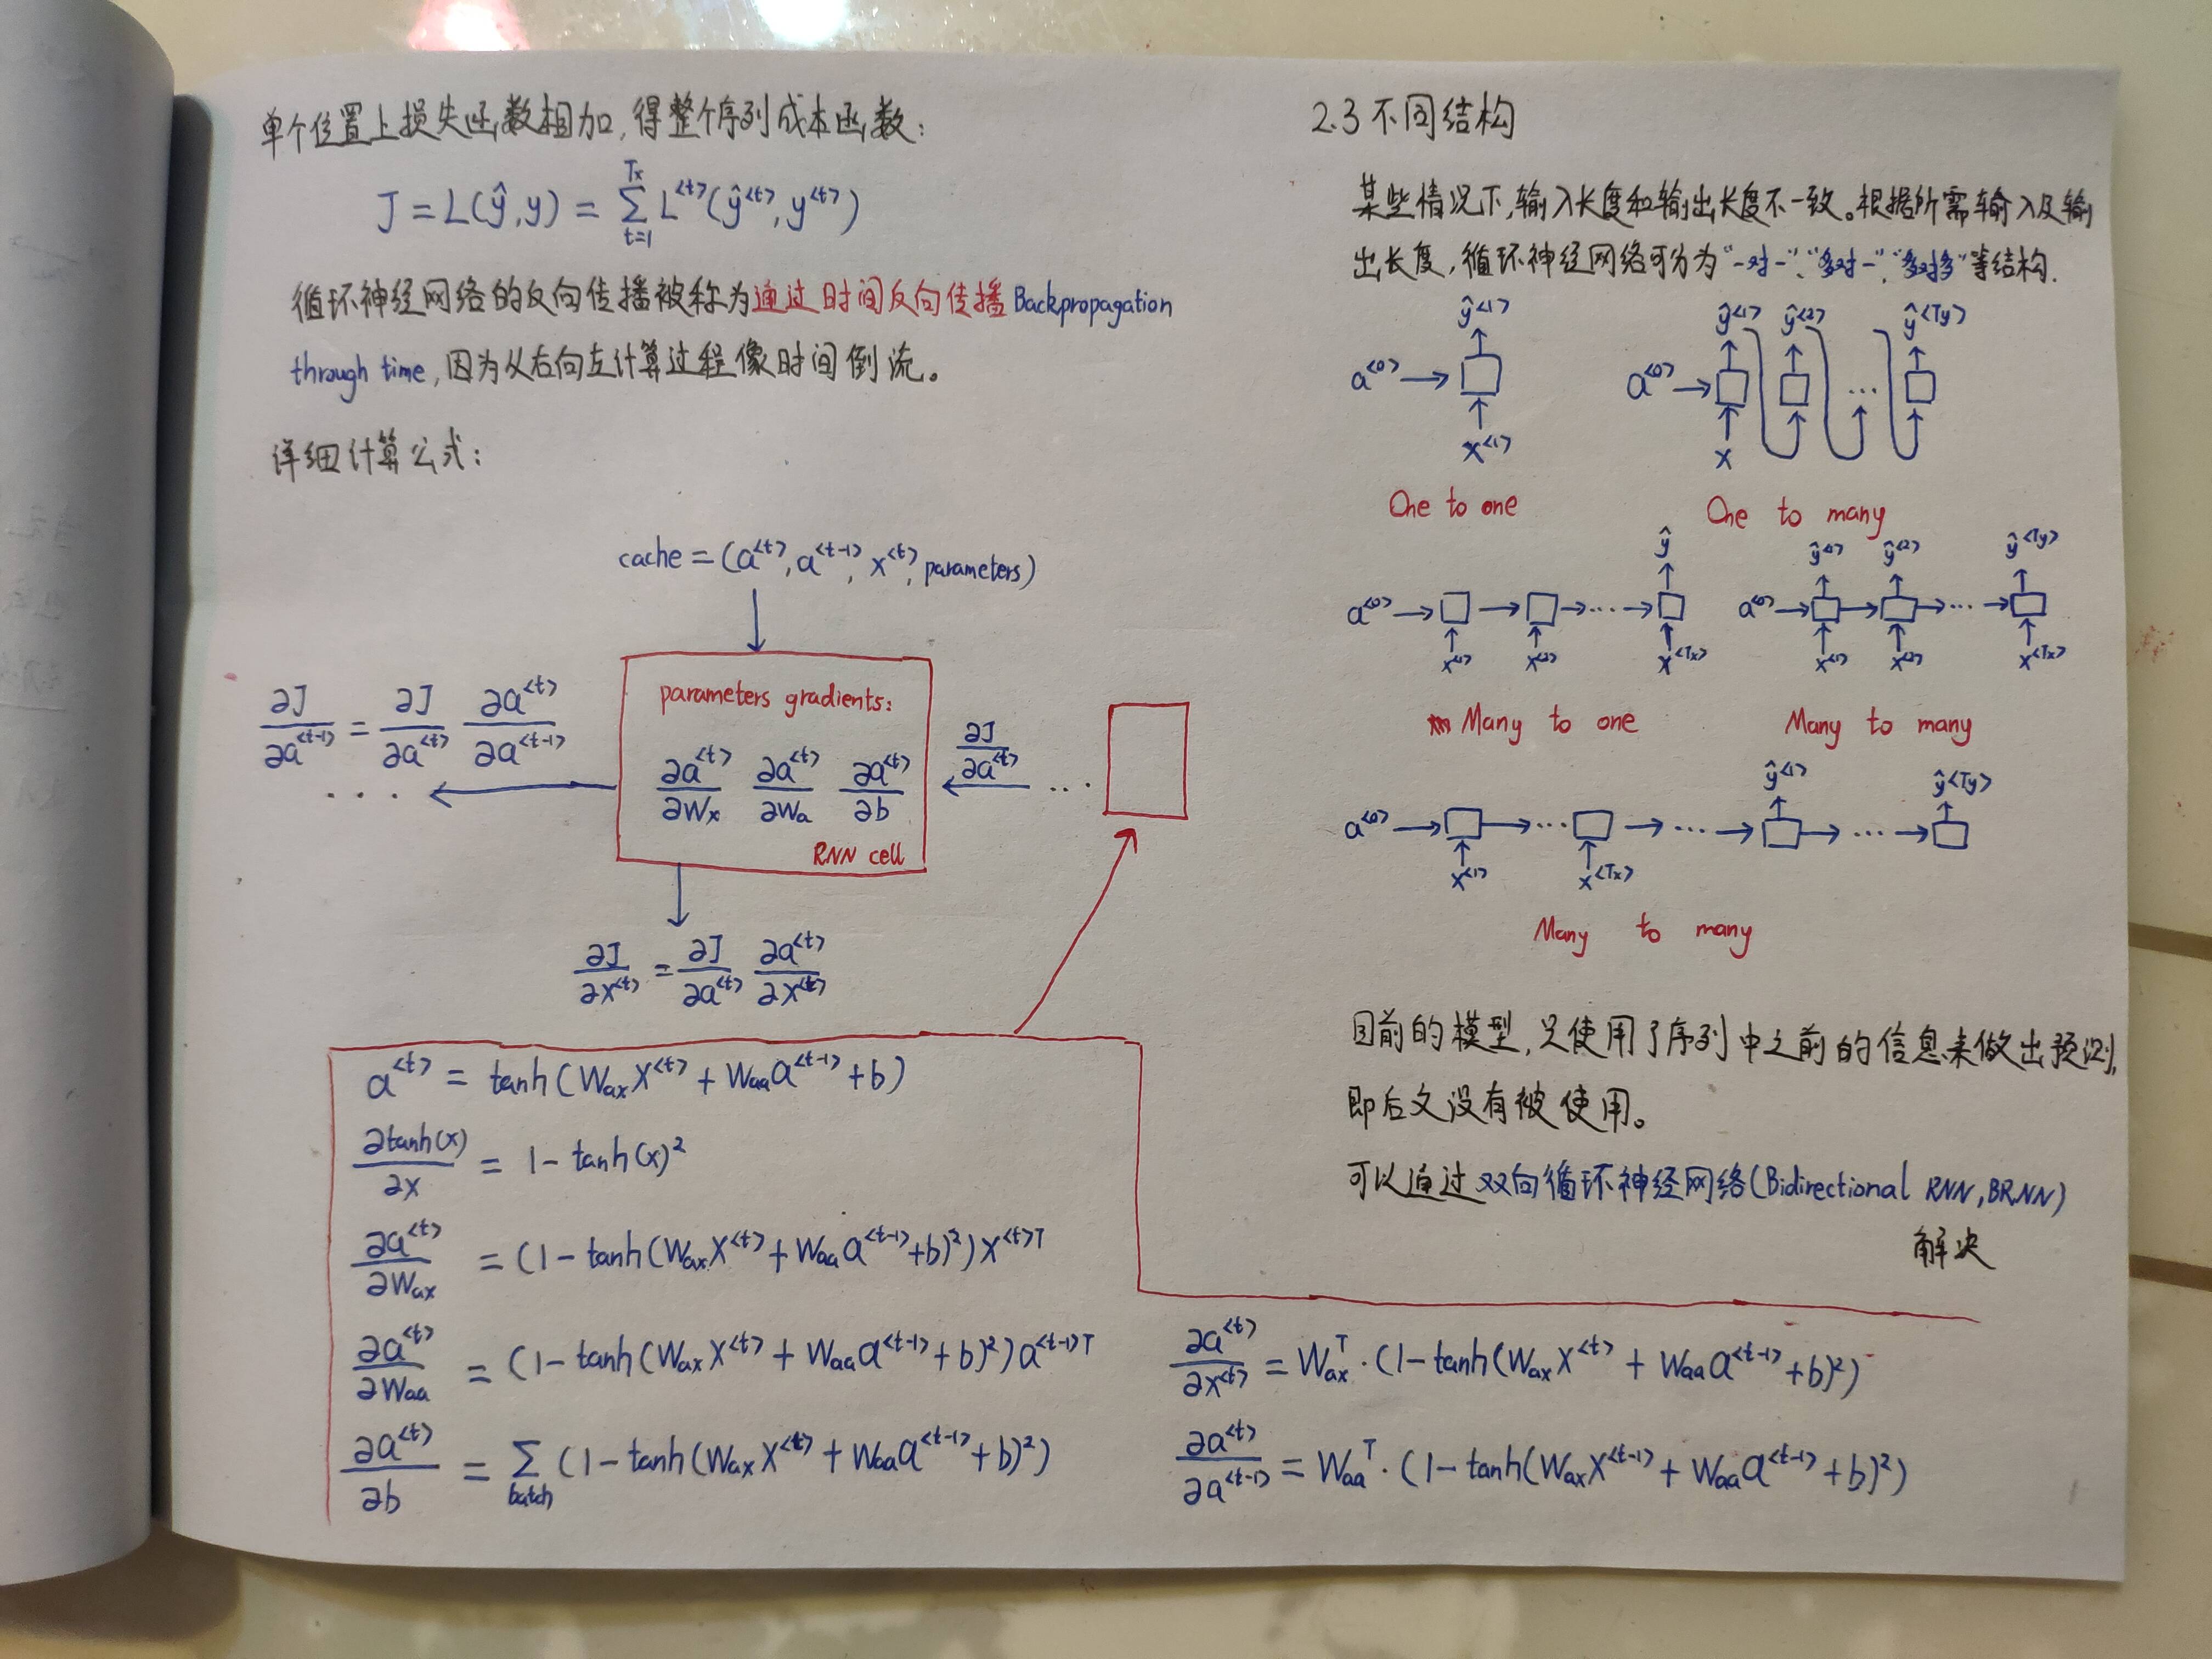 单个位置上损失函数相加,得整个序列成本函数:
J = L(ŷ,y) = Σ_{t=1}^{Tx} L^{<t>}(ŷ^{<t>},y^{<t>})
循环神经网络的反向传播被称为通过时间反向传播Backpropagation
through time,因为从右向左计算过程像时间倒流。
详细计算公式:
cache = (a^{<t>},a^{<t-1>},x^{<t>},parameters)
parameters gradients:
∂J/∂a^{<t-1>} = ∂J/∂a^{<t>} ∂a^{<t>}/∂a^{<t-1>}
...
∂a^{<t>}/∂Wx ∂a^{<t>}/∂Wa ∂a^{<t>}/∂b
RNN cell
∂J/∂a^{<t>}
...
∂J/∂x^{<t>} = ∂J/∂a^{<t>} ∂a^{<t>}/∂x^{<t>}
a^{<t>} = tanh(Wax x^{<t>} + Waa a^{<t-1>} + b)
∂tanh(x)/∂x = 1 - tanh(x)²
∂a^{<t>}/∂Wax = (1 - tanh(Wax x^{<t>} + Waa a^{<t-1>} + b)²) x^{<t>T}
∂a^{<t>}/∂Waa = (1 - tanh(Wax x^{<t>} + Waa a^{<t-1>} + b)²) a^{<t-1>T}
∂a^{<t>}/∂b = Σ_{batch} (1 - tanh(Wax x^{<t>} + Waa a^{<t-1>} + b)²)
∂a^{<t>}/∂x^{<t>} = Wax^T · (1 - tanh(Wax x^{<t>} + Waa a^{<t-1>} + b)²)
∂a^{<t>}/∂a^{<t-1>} = Waa^T · (1 - tanh(Wax x^{<t-1>} + Waa a^{<t-1>} + b)²)
2.3 不同结构
某些情况下,输入长度和输出长度不一致。根据所需输入及输
出长度,循环神经网络可分为“一对一”、“多对一”、“多对多”等结构.
ŷ^{<1>}
a^{<0>}
x^{<1>}
One to one
ŷ^{<1>} ŷ^{<2>} ŷ^{<Ty>}
a^{<0>} ...
x
One to many
ŷ
a^{<0>} ...
x^{<1>} x^{<2>} x^{<Tx>}
Many to one
ŷ^{<1>} ŷ^{<2>} ŷ^{<Ty>}
a^{<0>} ...
x^{<1>} x^{<2>} x^{<Tx>}
Many to many
ŷ^{<1>} ŷ^{<Ty>}
a^{<0>} ... ... ...
x^{<1>} x^{<Tx>}
Many to many
目前的模型,只使用了序列中之前的信息来做出预测,
即后文没有被使用。
可以通过双向循环神经网络(Bidirectional RNN,BRNN)
解决